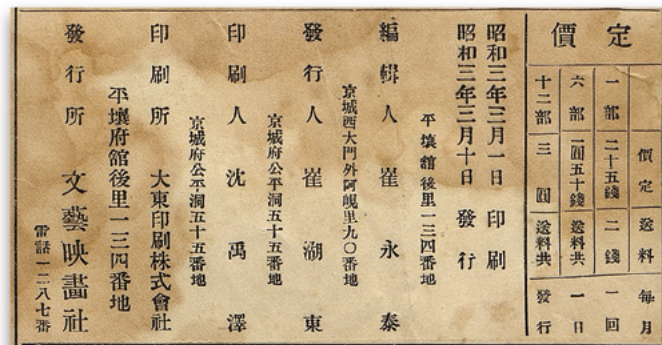 定價
價定 送料 每月
一部 二十五錢 二錢 一回
六部 一圓五十錢 送料共 一日
十二部 三圓 送料共 發行
昭和三年三月一日 印刷
昭和三年三月十日 發行
平壤舘後里一三四番地
編輯人 崔永泰
京城西大門外阿峴里九〇番地
發行人 崔湖東
京城府公平洞五十五番地
印刷人 沈禹澤
京城府公平洞五十五番地
印刷所 大東印刷株式會社
平壤府舘後里一三四番地
發行所 文藝映畫社
電話一二八七番